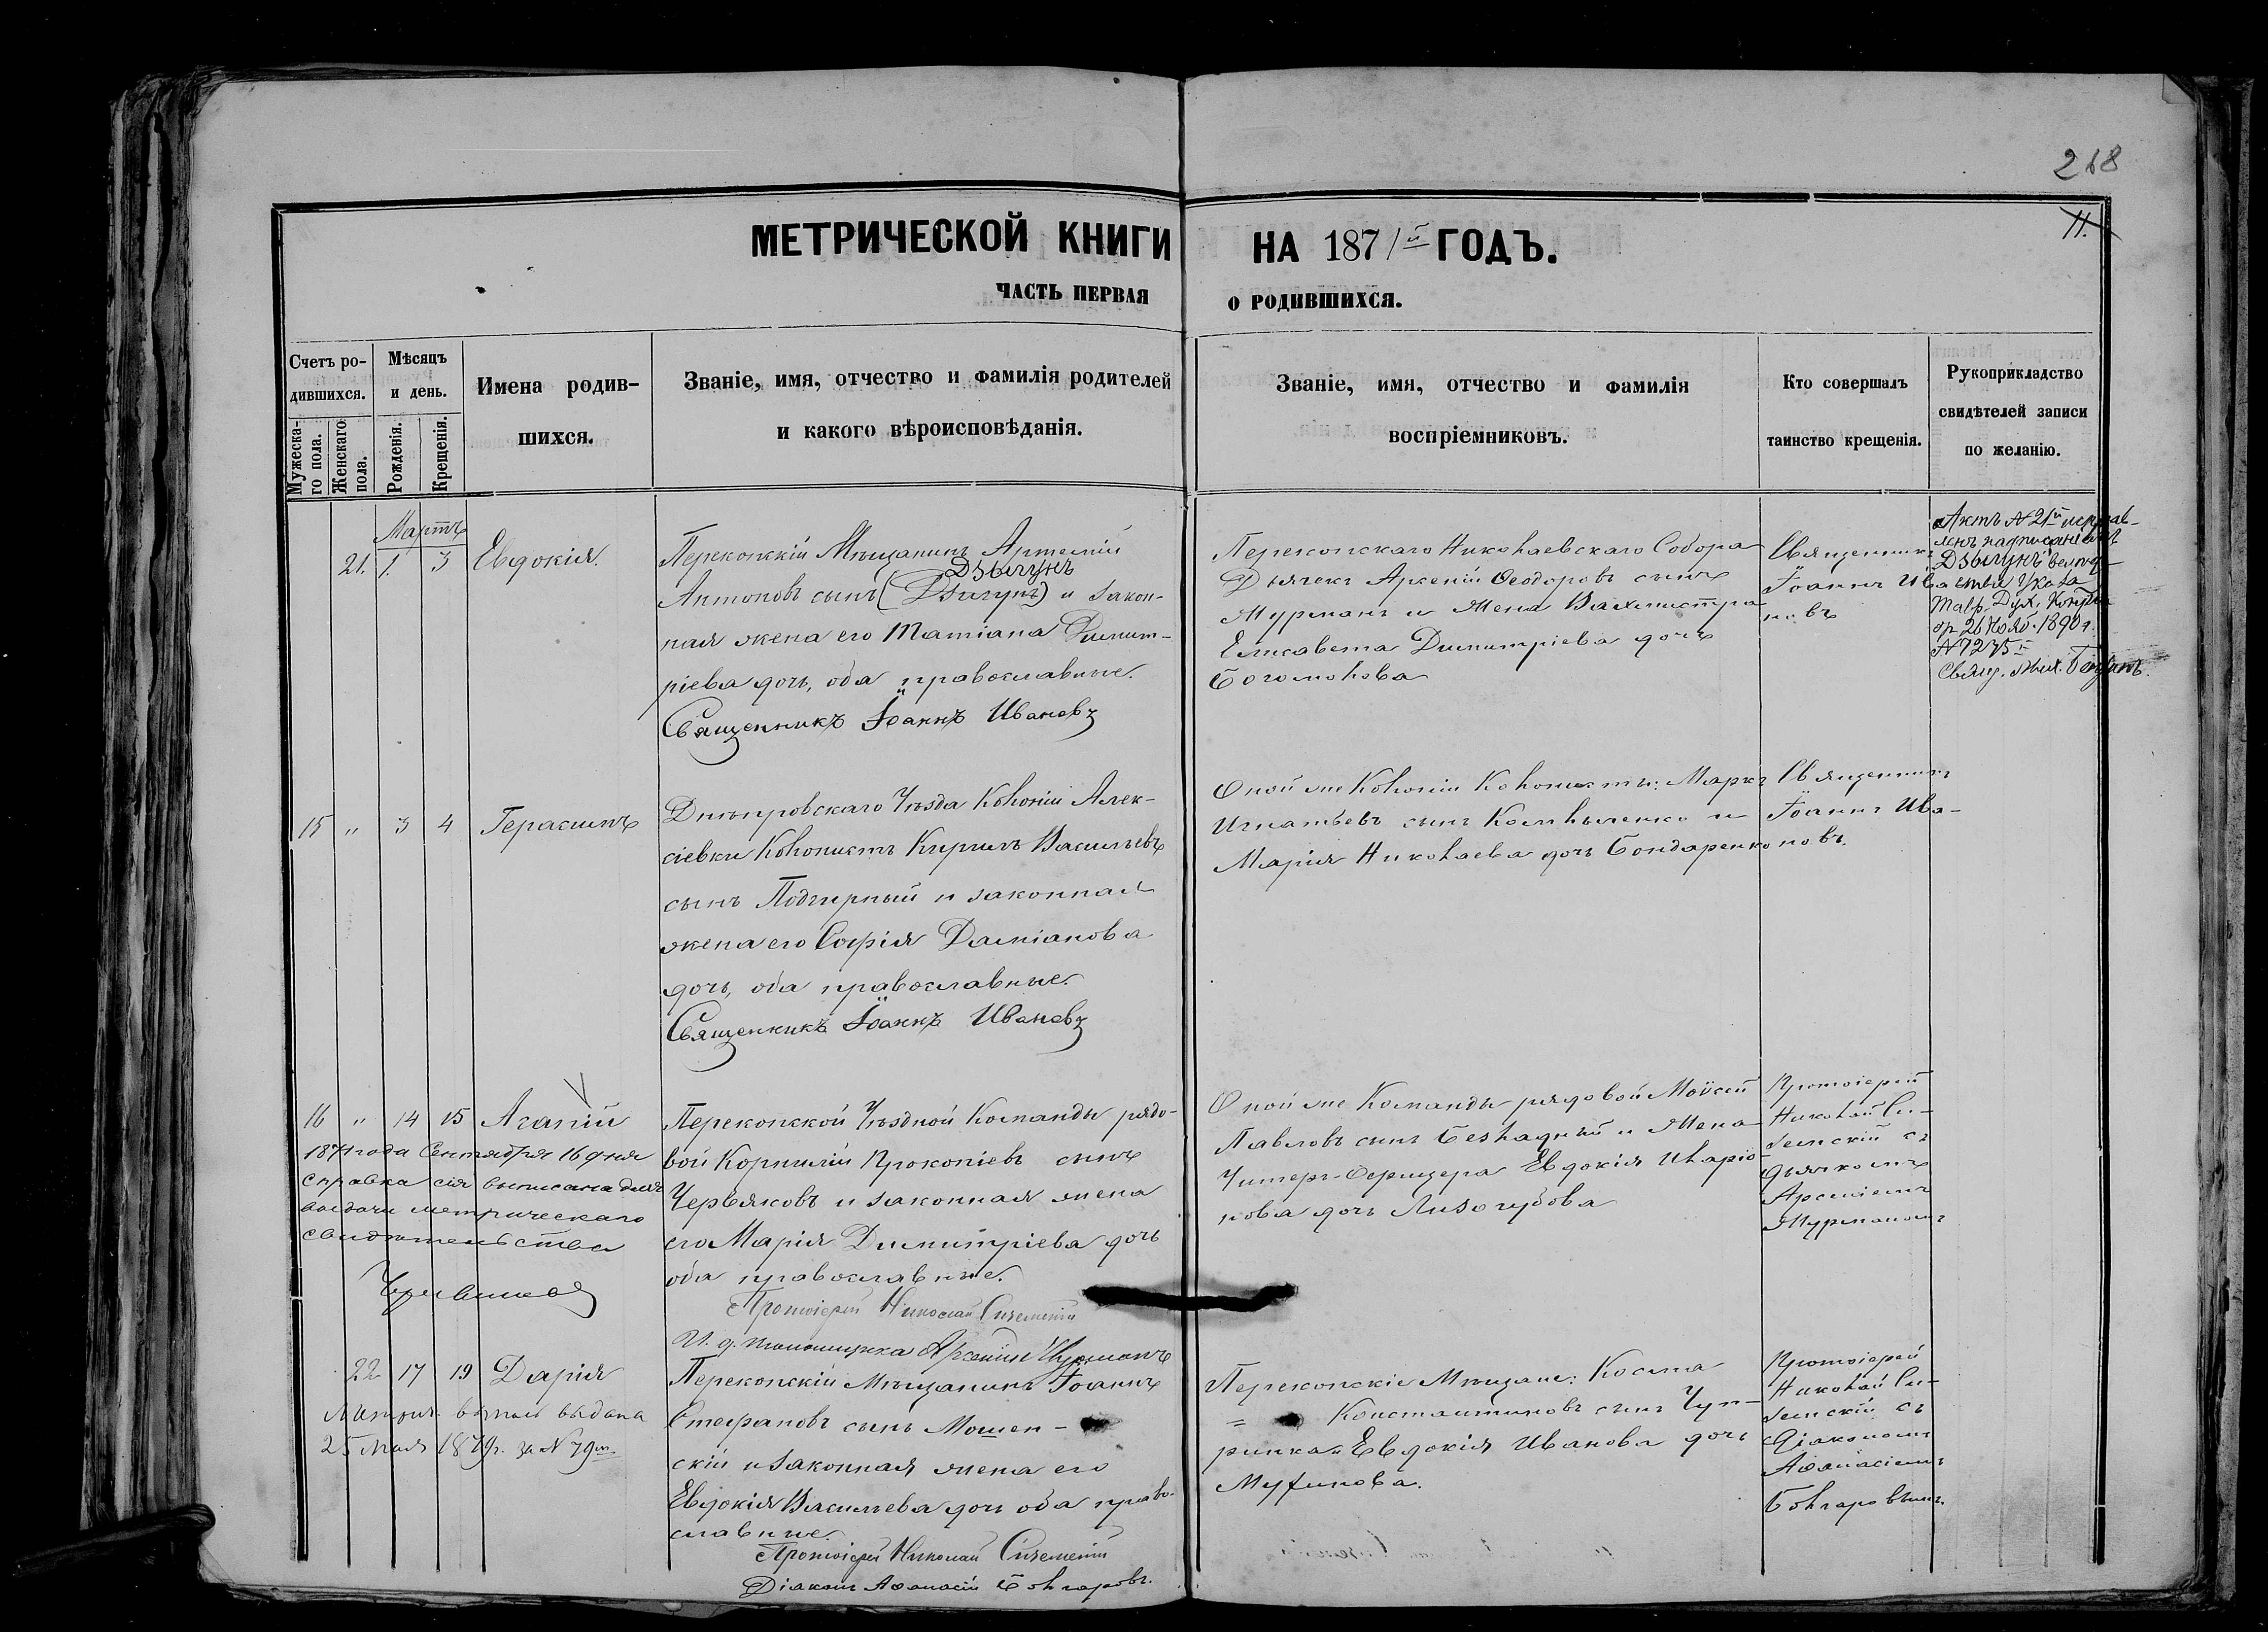 268
11.
МЕТРИЧЕСКОЙ КНИГИ НА 1871й ГОДЪ.
ЧАСТЬ ПЕРВАЯ О РОДИВШИХСЯ.
Счетъ родившихся.
Мужескаго пола.
Женскаго пола.
Мѣсяцъ и день.
Рожденія.
Крещенія.
Имена родившихся.
Званіе, имя, отчество и фамилія родителей
и какого вѣроисповѣданія.
Званіе, имя, отчество и фамилія
воспріемниковъ.
Кто совершалъ
таинство крещенія.
Рукоприкладство
свидѣтелей записи
по желанію.
Мартъ
21. 1. 3 Евдокія.
Перекопскій Мѣщанинъ Артемій
Дзыгунъ
Антоновъ сынъ (Дзигунъ) и закон-
ная жена его Татіана Димит-
ріева дочь, оба православные.
Священникъ Іоаннъ Ивановъ
Перекопскаго Николаевскаго Собора
Дьячекъ Арсеній Ѳеодоровъ сынъ
Мурманъ и жена Вахмистра
Елисавета Димитріева дочь
Богомолова
Священникъ
Іоаннъ Ива
новъ
Актъ № 21й исправ-
ленъ надписаніемъ
Дзыгунъ
указа
Тавр. Дух. Консис
26 Нояб. 1890 г.
№ 7275
Свящ. Мих.
15 " 3 4 Герасимъ
Днѣпровскаго Уѣзда Колоніи Алек-
сіевки Колонистъ Кирилъ Васильевъ
сынъ Подгирный и законная
жена его Софія Даміанова
дочь, оба православные.
Священникъ Іоаннъ Ивановъ
Оной же Колоніи Колонисты: Маркъ
Игнатьевъ сынъ и
Марія Николаева дочь Бондаренко
Священникъ
Іоаннъ Ива-
новъ.
16 " 14 15 Агапій
1871 года Сентября 16 дня
справка сія выписана для
выдачи метрическаго
свидѣтельства
Перекопской Уѣздной Команды рядо-
вой Корнилій Прокопіевъ сынъ
Червяковъ и законная жена
его Марія Димитріева дочь
оба православные.
Протоіерей Николай Сиземскій
И. д. пономаря Арсеній Мурманъ
Оной же Команды рядовой Моѵсей
Павловъ сынъ Безладный и жена
Унтеръ-Офицера Евдокія Иларіо-
нова дочь Лизогубова
Протоіерей
Николай Си-
земскій съ
дьячкомъ
Арсеніемъ
Мурманомъ
22 17 19 Дарія
Метрич. выпись выдана
25 Мая 1879 г. за № 79м
Перекопскій Мѣщанинъ Іоаннъ
Стефановъ сынъ Мошен-
скій и законная жена его
Евдокія Васильева дочь оба право-
славные.
Протоіерей Николай Сиземскій
Діаконъ Аѳанасій Болгаровъ.
Перекопскіе Мѣщане: Косма
= Константиновъ сынъ Чуп-
ринка и Евдокія Иванова дочь
Протоіерей
Николай Си-
земскій съ
Діакономъ
Аѳанасіемъ
Болгаровымъ.